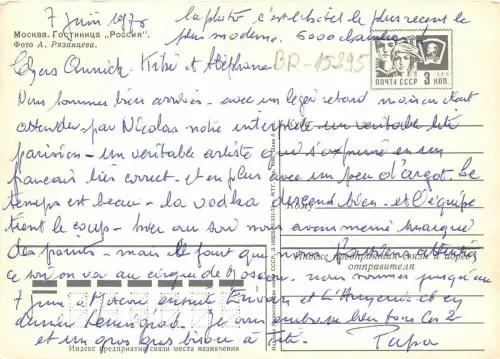 7 juin 1970
la photo c'est l'hôtel le plus récent le
plus moderne. 6000 chambres
Москва. Гостиница „Россия".
Фото А. Рязанцева.
BP-15295
Chers Annick. Kiki et Stéphane
ПОЧТА СССР 3 КОП.
Nous sommes bien arrivés - avec un léger retard mais en étant
attendus par Nicolas notre interprète un véritable titi
parisien - un véritable artiste qui s'exprime en un
français très correct - et en plus avec un peu d'argot. Le
temps est beau - la vodka descend bien - et l'équipe
Кому
tient le coup - hier au soir nous avons même marqué
des points - mais il faut que nous
Индекс предприятия связи и адрес
отправителя
ce soir on va au cirque de Moscou. nous sommes jusqu'au
7 juin à Moscou ensuite Erivan et l'Arménie et en
dernier Leningrad. Je vous embrasse bien tous les 2
et un gros gros bisou à
Papa
Индекс предприятия связи места назначения